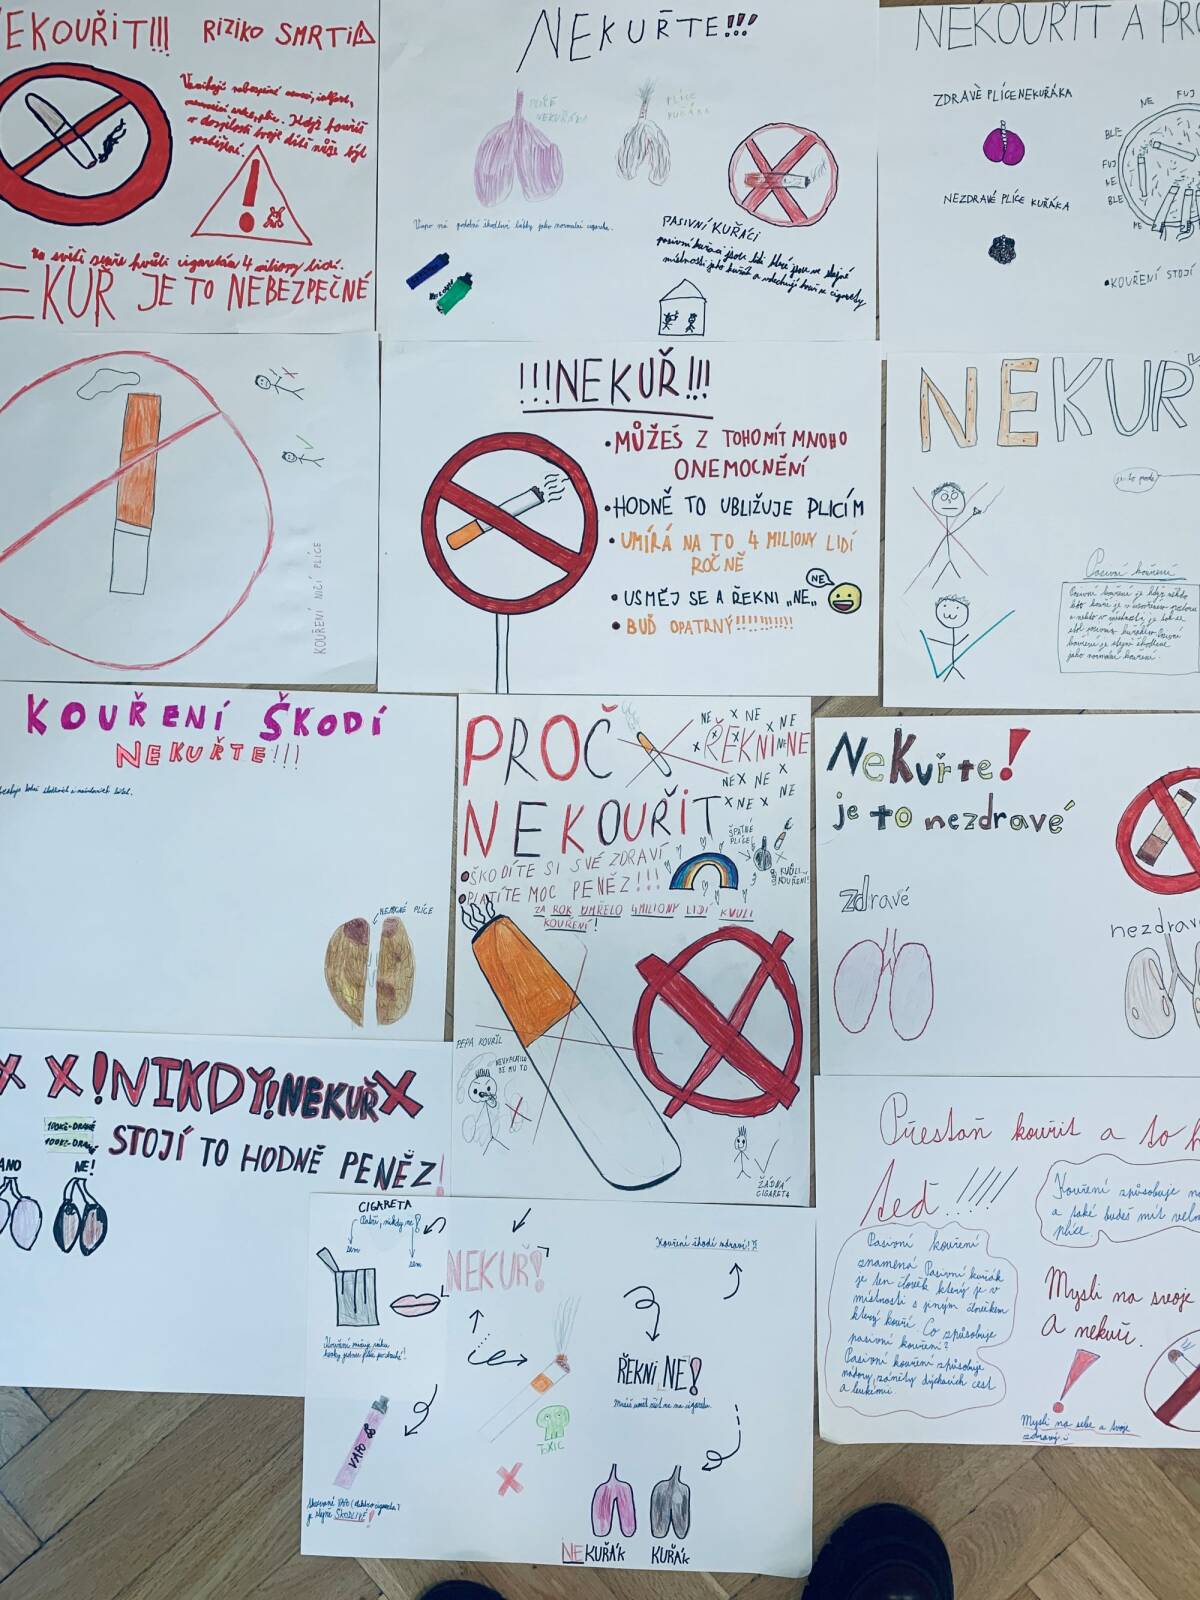 NEKOUŘIT!!! RIZIKO SMRTI
Když kouříš
v dospělosti tvoje dítě může být
na světě zemře kvůli cigaretám 4 miliony lidí.
EKUŘ JE TO NEBEZPEČNÉ
NEKUŘTE!!!
PLÍCE
NEKUŘÁKA
PLÍCE
KUŘÁKA
Vapo má podobné škodlivé látky jako normální cigareta.
PASIVNÍ KUŘÁCI
pasivní kuřáci jsou lidi které jsou ve stejné
místnosti jako kuřák a vdechují kouř z cigarety
NEKOUŘIT A PRO
ZDRAVÉ PLÍCE NEKUŘÁKA
NEZDRAVÉ PLÍCE KUŘÁKA
NE
FUJ
BLE
FUJ
NE
BLE
•KOUŘENÍ STOJÍ
KOUŘENÍ NIČÍ PLÍCE
!!!NEKUŘ!!!
•MŮŽEŠ Z TOHO MÍT MNOHO
ONEMOCNĚNÍ
•HODNĚ TO UBLIŽUJE PLICÍM
•UMÍRÁ NA TO 4 MILIONY LIDÍ
ROČNĚ
•USMĚJ SE A ŘEKNI „NE„
NE
•BUĎ OPATRNÝ!!!!!!!!!!
NEKUŘ
Pasivní kouření
Pasivní kouření je když někdo
kouření je stejně škodlivé
jako normální kouření.
KOUŘENÍ ŠKODÍ
NEKUŘTE!!!
NEMOCNÉ PLÍCE
PROČ
NEKOUŘIT
NE X NE X NE
ŘEKNI NE
NE X NE X
X NE X NE
•ŠKODÍTE SI SVÉ ZDRAVÍ
•PLATÍTE MOC PENĚZ!!!
ZA ROK UMŘELO 4MILIONY LIDÍ KVULI
KOUŘENÍ!
ŠPATNÉ
PLÍCE!
KVŮLI
KOUŘENÍ!
PEPA KOUŘIL
NEVYPLATILO
SE MU TO
ŽÁDNÁ
CIGARETA
NeKuřte!
je to nezdravé
zdravé
nezdravé
X X !NIKDY! NEKUŘ X
STOJÍ TO HODNĚ PENĚZ!
ANO
NE!
CIGARETA
Patří, nikdy ne!
sem
sem
NEKUŘ!
Kouření škodí zdraví!!
ŘEKNI NE!
Musíš umět říct ne na cigaretu.
VAPO
je stejně ŠKODLIVÉ!
TOXIC
NEKUŘÁK
KUŘÁK
Přestaň kouřit a to h
teď!!!!
Kouření způsobuje
a také budeš mít
plíce.
Pasivní kouření
znamená Pasivní kuřák
je ten člověk který je v
místnosti s jiným člověkem
který kouří. Co způsobuje
pasivní kouření?
Pasivní kouření způsobuje
nádory, záněty dýchacích cest
a leukemii.
Mysli na svoje
a nekuř.
Mysli na sebe a svoje
zdraví